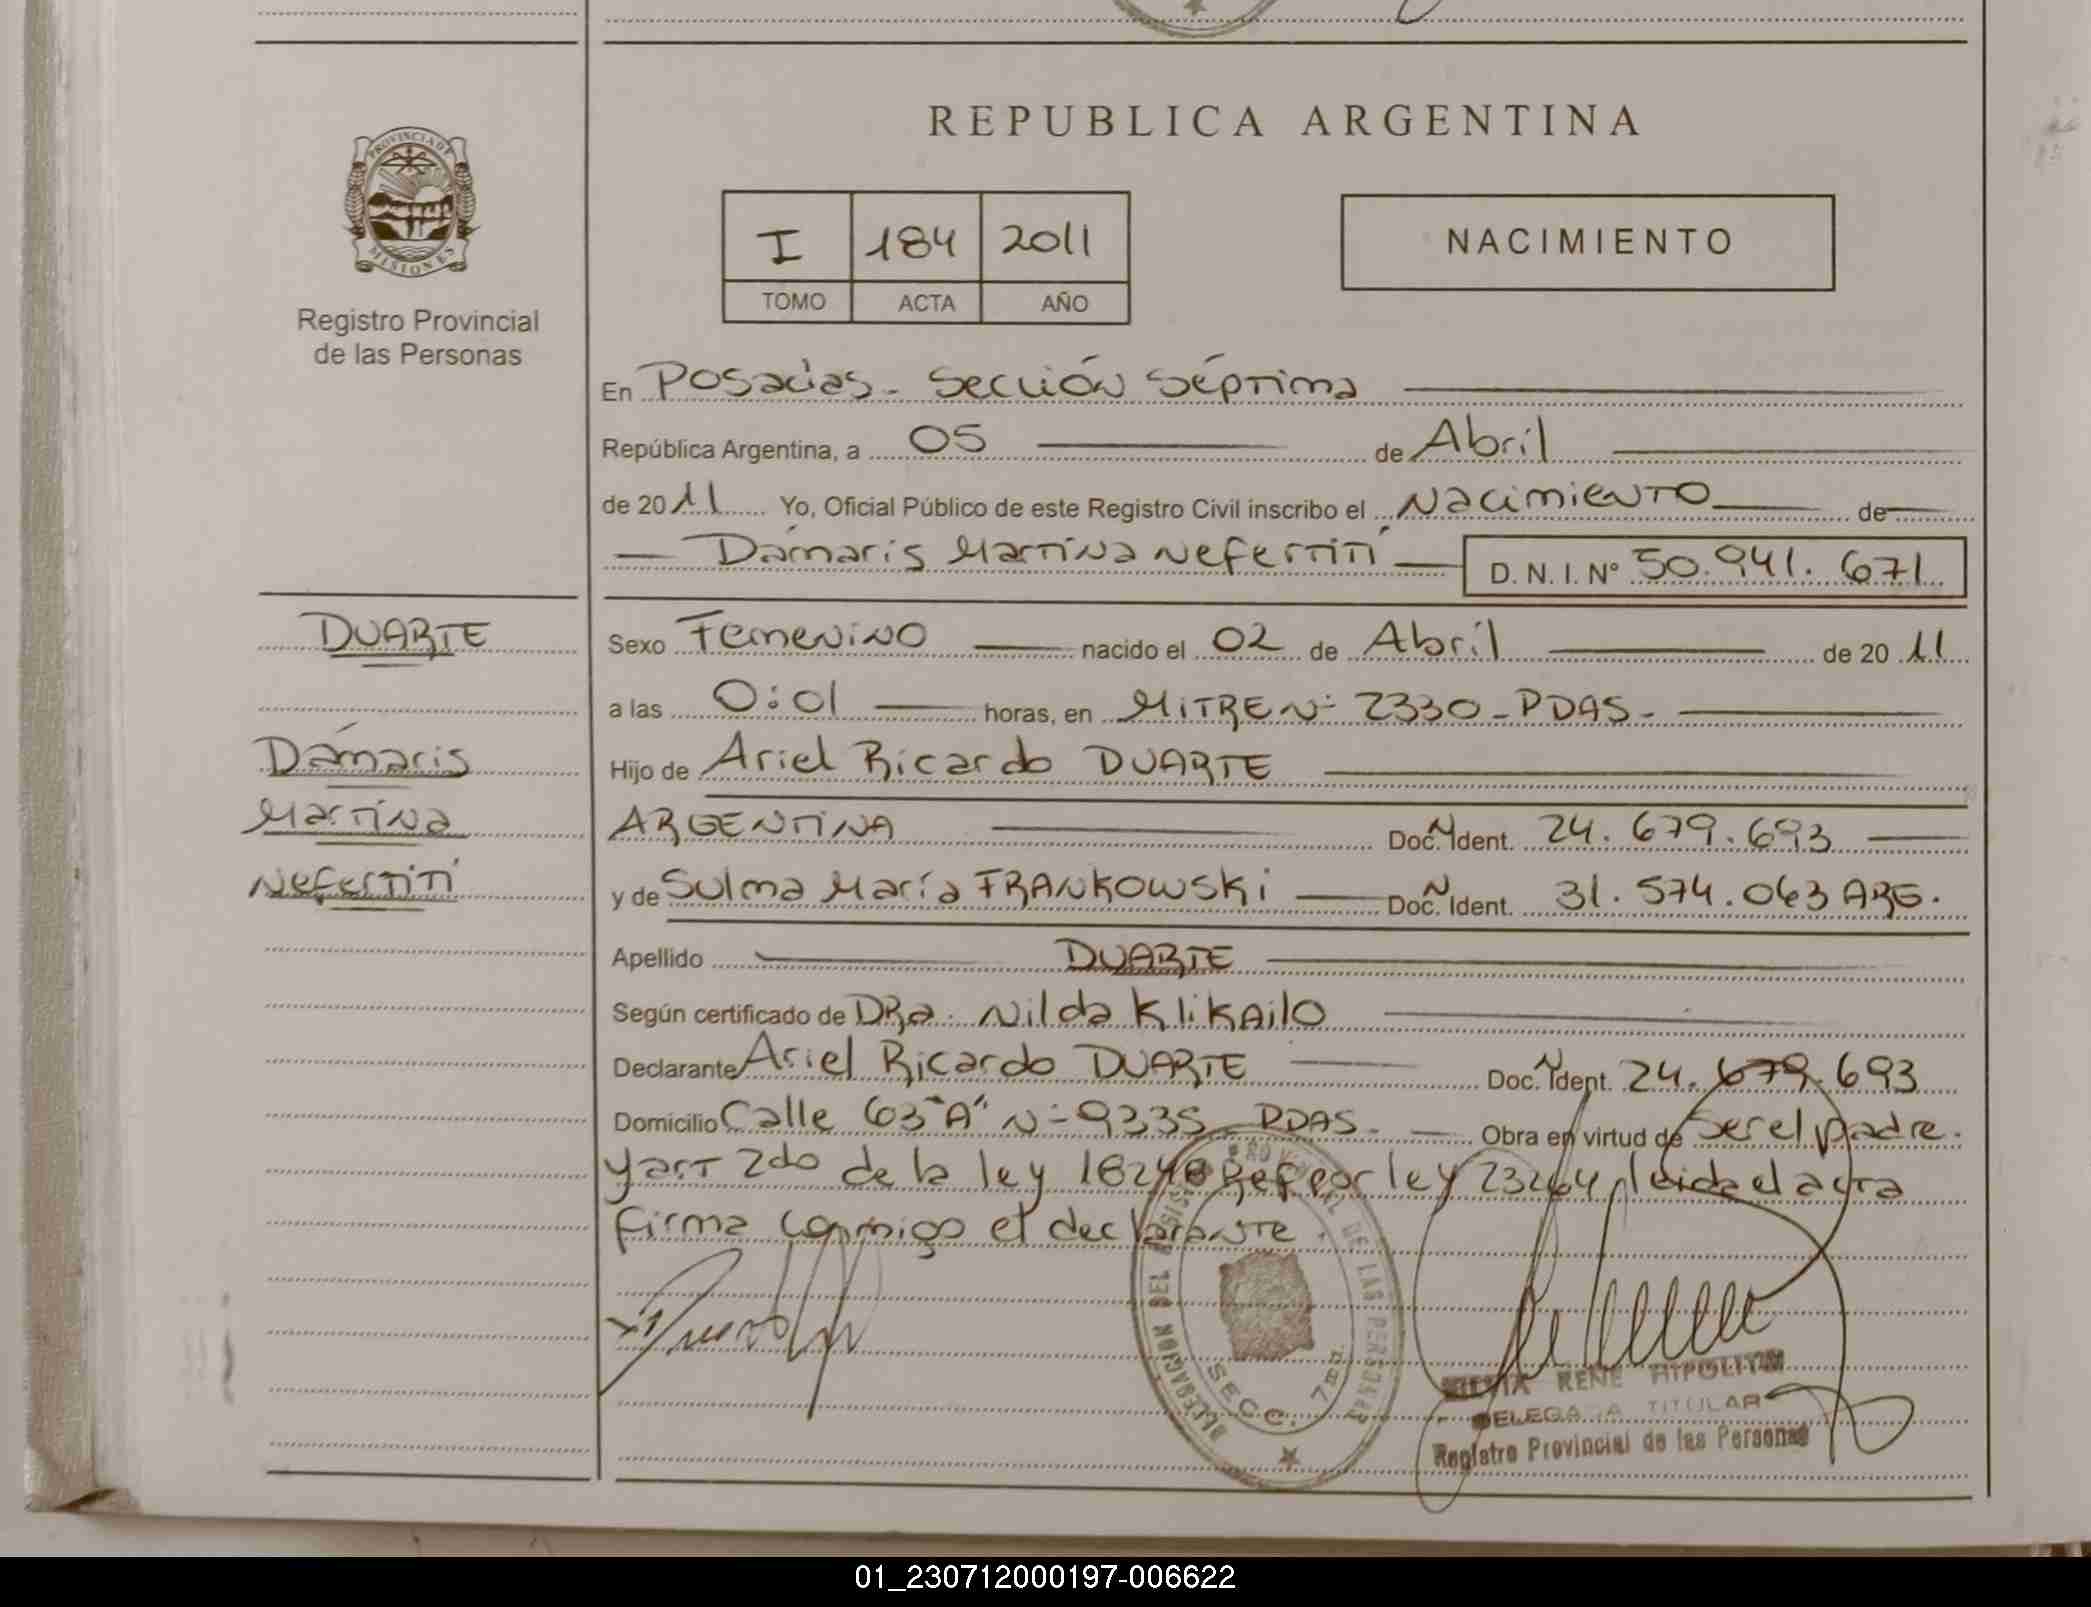 PROVINCIA DE
MISIONES
Registro Provincial
de las Personas
REPUBLICA ARGENTINA
I 184 2011
TOMO ACTA AÑO
NACIMIENTO
En Posadas - Sección Séptima
República Argentina, a 05 de Abril
de 2011 Yo, Oficial Público de este Registro Civil inscribo el Nacimiento de
Dámaris Martina Nefertití D. N. I. Nº 50.941.671
DUARTE
Dámaris
Martina
Nefertití
Sexo Femenino nacido el 02 de Abril de 2011
a las 0:01 horas, en MITRE Nº 2330 - PDAS -
Hijo de Ariel Ricardo DUARTE
ARGENTINA Doc. N Ident. 24.679.693
y de Sulma María FRANKOWSKI Doc. N Ident. 31.574.063 ARG.
Apellido DUARTE
Según certificado de DRa. Nilda KliKAilO
Declarante Ariel Ricardo DUARTE Doc. N Ident. 24.679.693
Domicilio Calle 63 "A" Nº 9335 PDAS - Obra en virtud de ser el padre.
y art 2do de la ley 18248 Ref por ley 23264 leida el acta
firma conmigo el declarante
DELEGACION DEL REGISTRO PROVINCIAL DE LAS PERSONAS
SECC. 7ma.
RENE HIPOLITO
DELEGADA TITULAR
Registro Provincial de las Personas
01_230712000197-006622